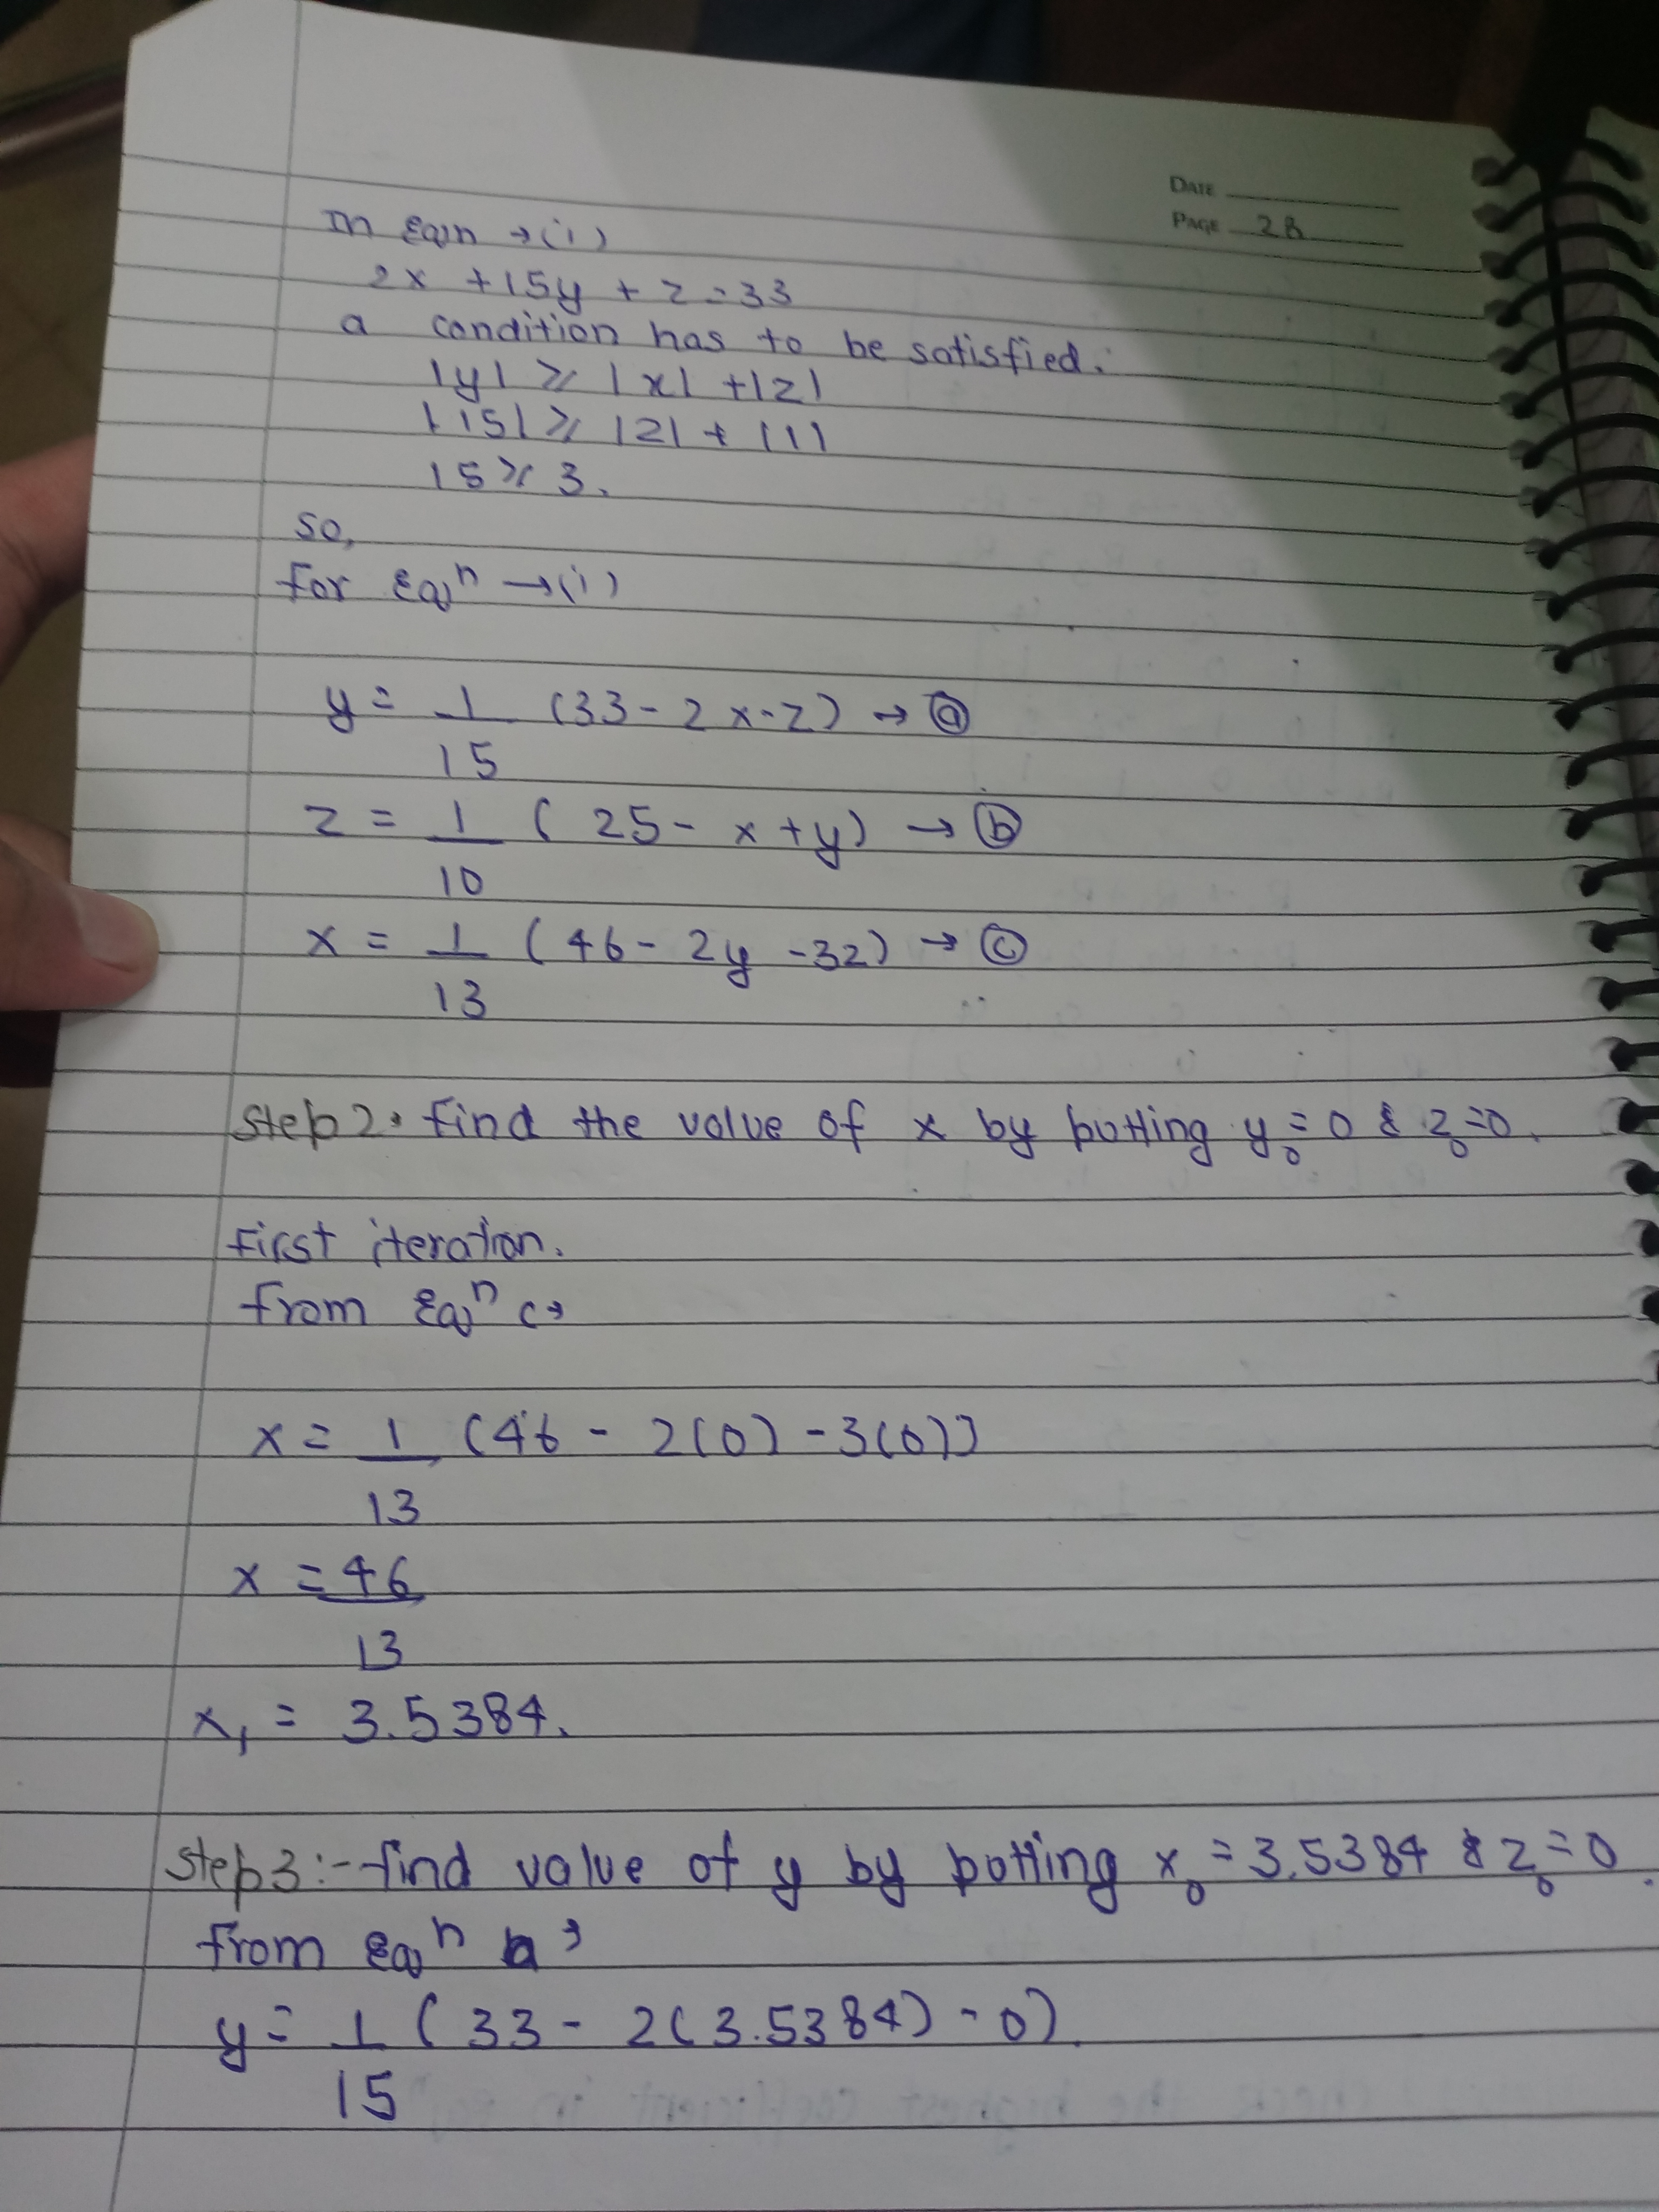 DATE
PAGE 28
In Eqn → (i)
2x + 15y + z = 33
a condition has to be satisfied.
|y| ≥ |x| + |z|
|15| ≥ |2| + |1|
15 ≥ 3.
so,
for Eqⁿ → (i)
y = 1/15 (33 - 2x - z) → ⓐ
z = 1/10 (25 - x + y) → ⓑ
x = 1/13 (46 - 2y - 3z) → ⓒ
Step 2. find the value of x by putting y₀ = 0 & z₀ = 0.
First iteration.
from Eqⁿ c→
x = 1/13 (46 - 2(0) - 3(0))
x = 46/13
x₁ = 3.5384.
Step 3:- find value of y by putting x₀ = 3.5384 & z₀ = 0.
from Eqⁿ a,
y = 1/15 (33 - 2(3.5384) - 0).